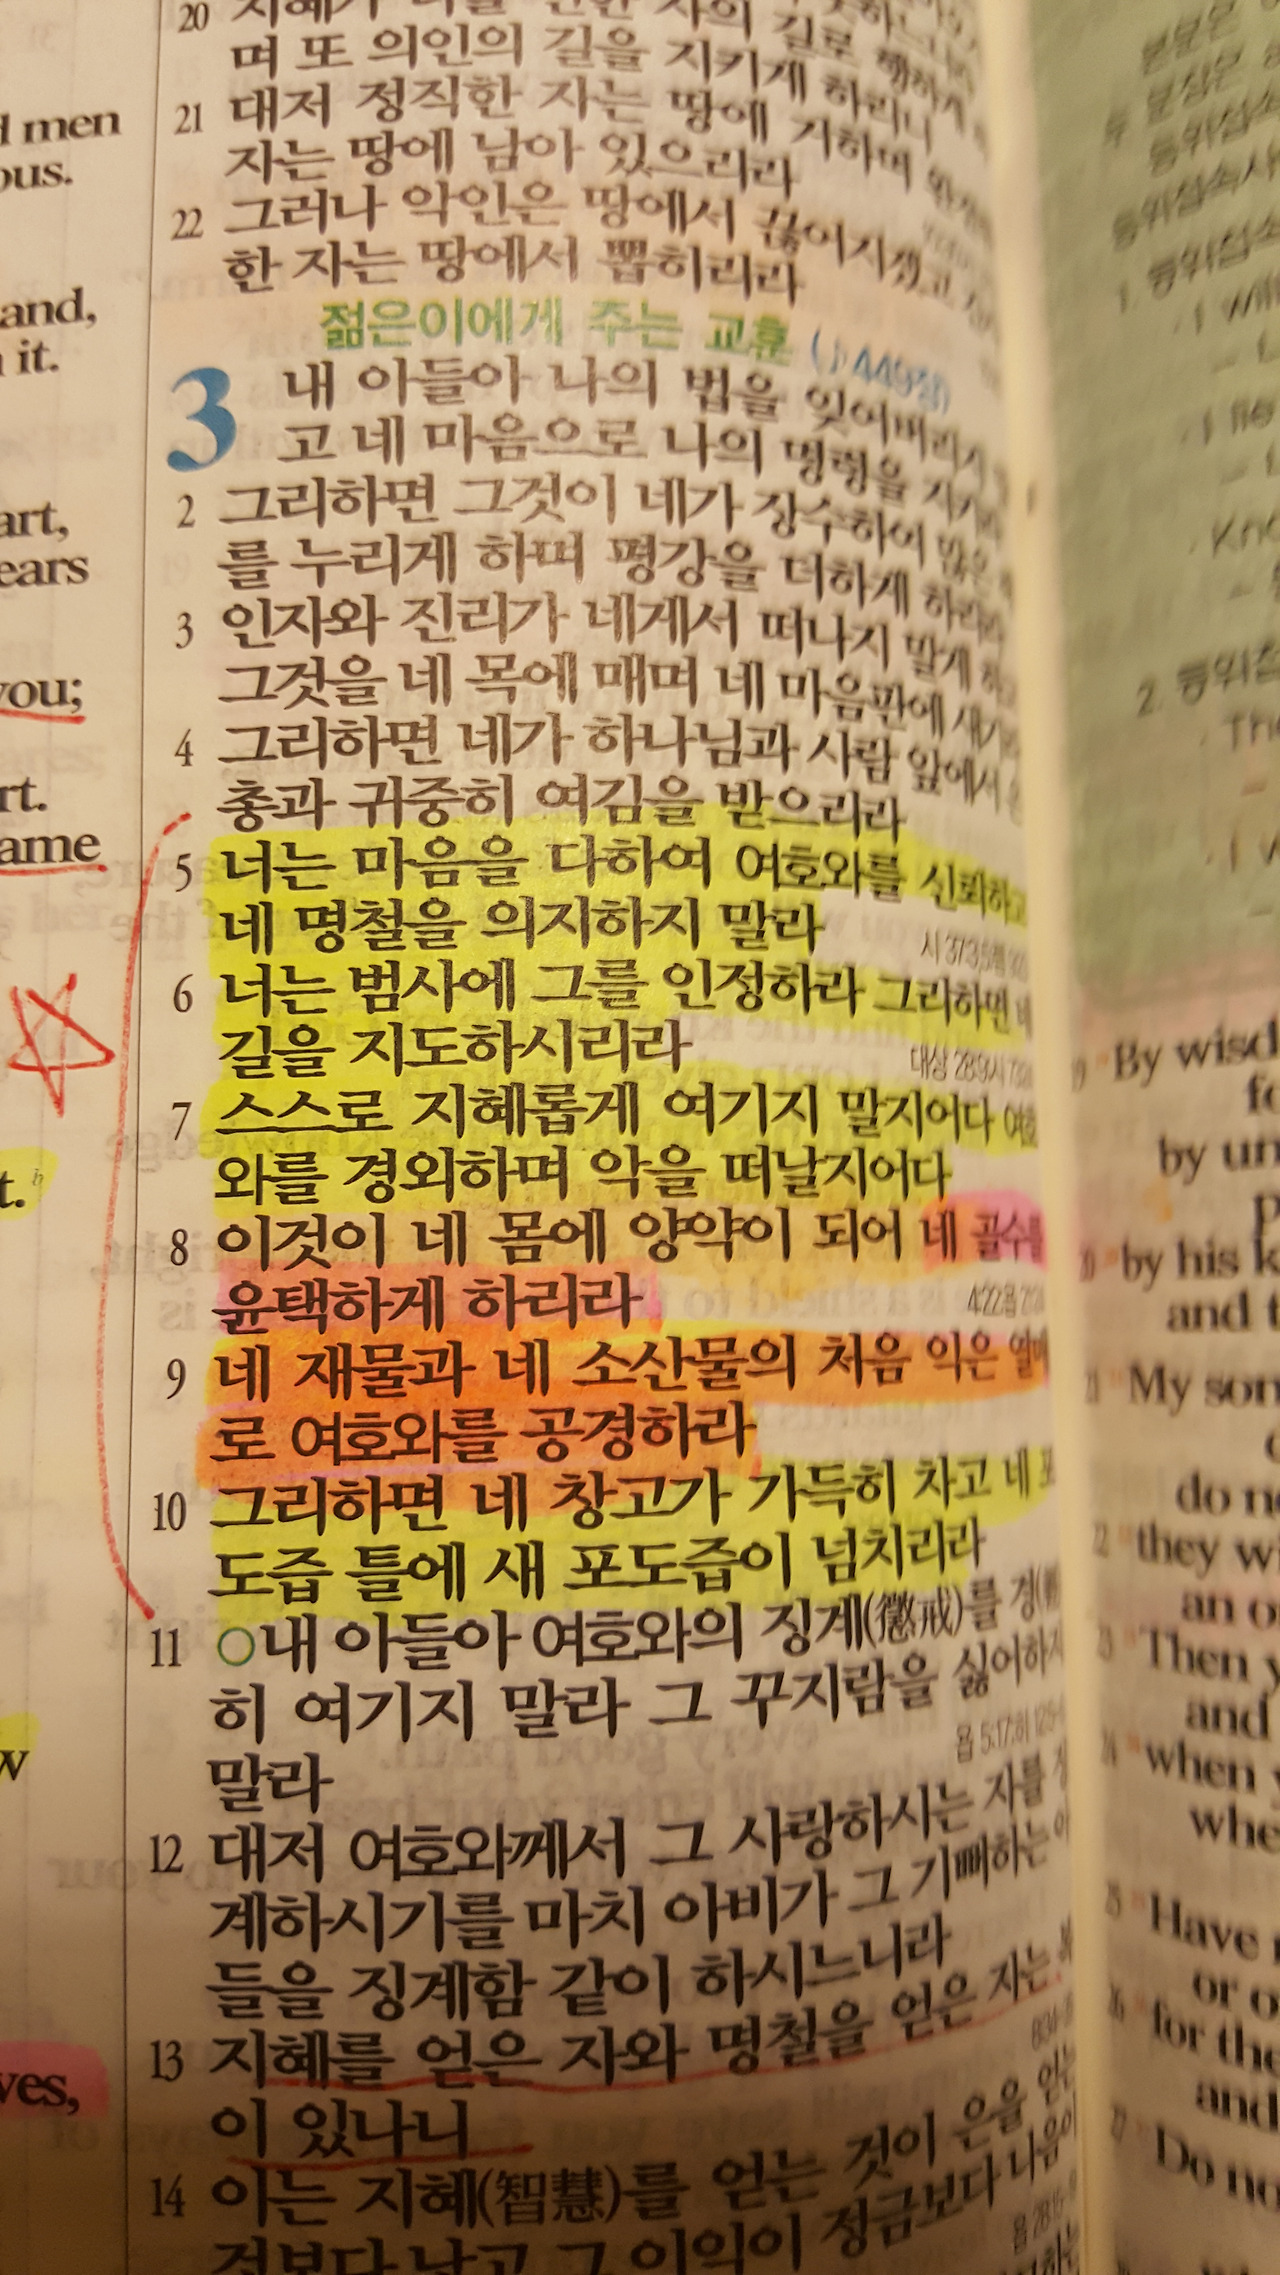 d men
ous.
and,
n it.
art,
ears
you;
rt.
ame
t.b
w
ves,
20 지혜가 너를 선한 자의 길로 행하게
며 또 의인의 길을 지키게 하리니
21 대저 정직한 자는 땅에 거하며 완전한
자는 땅에 남아 있으리라
22 그러나 악인은 땅에서 끊어지겠고
한 자는 땅에서 뽑히리라
젊은이에게 주는 교훈 (♪449장)
3 내 아들아 나의 법을 잊어버리지
고 네 마음으로 나의 명령을 지키라
2 그리하면 그것이 네가 장수하여 많은
를 누리게 하며 평강을 더하게 하리라
3 인자와 진리가 네게서 떠나지 말게 하고
그것을 네 목에 매며 네 마음판에 새기라
4 그리하면 네가 하나님과 사람 앞에서 은
총과 귀중히 여김을 받으리라
5 너는 마음을 다하여 여호와를 신뢰하고
네 명철을 의지하지 말라
시 37:3,5
6 너는 범사에 그를 인정하라 그리하면 네
길을 지도하시리라
대상 28:9
7 스스로 지혜롭게 여기지 말지어다 여호
와를 경외하며 악을 떠날지어다
8 이것이 네 몸에 양약이 되어 네 골수를
윤택하게 하리라
4:22
9 네 재물과 네 소산물의 처음 익은 열매
로 여호와를 공경하라
10 그리하면 네 창고가 가득히 차고 네 포
도즙 틀에 새 포도즙이 넘치리라
11 ○내 아들아 여호와의 징계(懲戒)를 경(
히 여기지 말라 그 꾸지람을 싫어하지
말라
욥 5:17;히 12:5
12 대저 여호와께서 그 사랑하시는 자를 징
계하시기를 마치 아비가 그 기뻐하는 아
들을 징계함 같이 하시느니라
13 지혜를 얻은 자와 명철을 얻은 자는 복
이 있나니
14 이는 지혜(智慧)를 얻는 것이 은을 얻는
것보다 낫고 그 이익이 정금보다 나음이
등위접속사
1. 등위접속
· I will
Kno
2. 등위접
· The
19 By wisd
fo
by un
p
20 by his k
and t
21 My son
do no
22 they wi
an o
23 Then y
and
24 when y
whe
25 Have
or o
26 for the
and
27 Do no